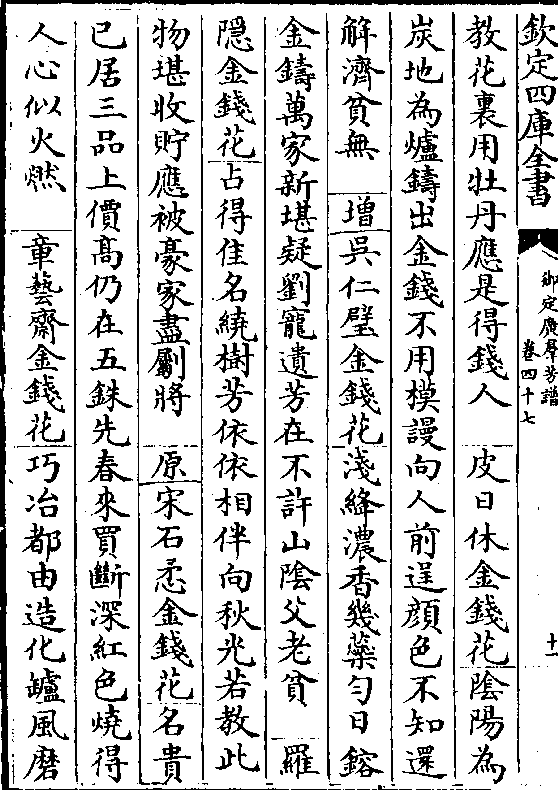 欽定四庫全書
御定廣羣芳譜
卷四十七
十一
教花裏用牡丹應是得錢人 皮日休金錢花陰陽為
炭地為爐鑄出金錢不用模謾向人前逞顔色不知還
解濟貧無 增吳仁璧金錢花淺絳濃香幾藥勻日鎔
金鑄萬家新堪疑劉寵遺芳在不許山隂父老貧 羅
隠金錢花占得佳名繞樹芳依依相伴向秋光若教此
物堪收貯應被豪家盡劚將 原宋石𢙢金錢花名貴
已居三品上價髙仍在五銖先春來買斷深紅色燒得
人心似火燃 童藝齋金錢花巧冶都由造化爐風磨